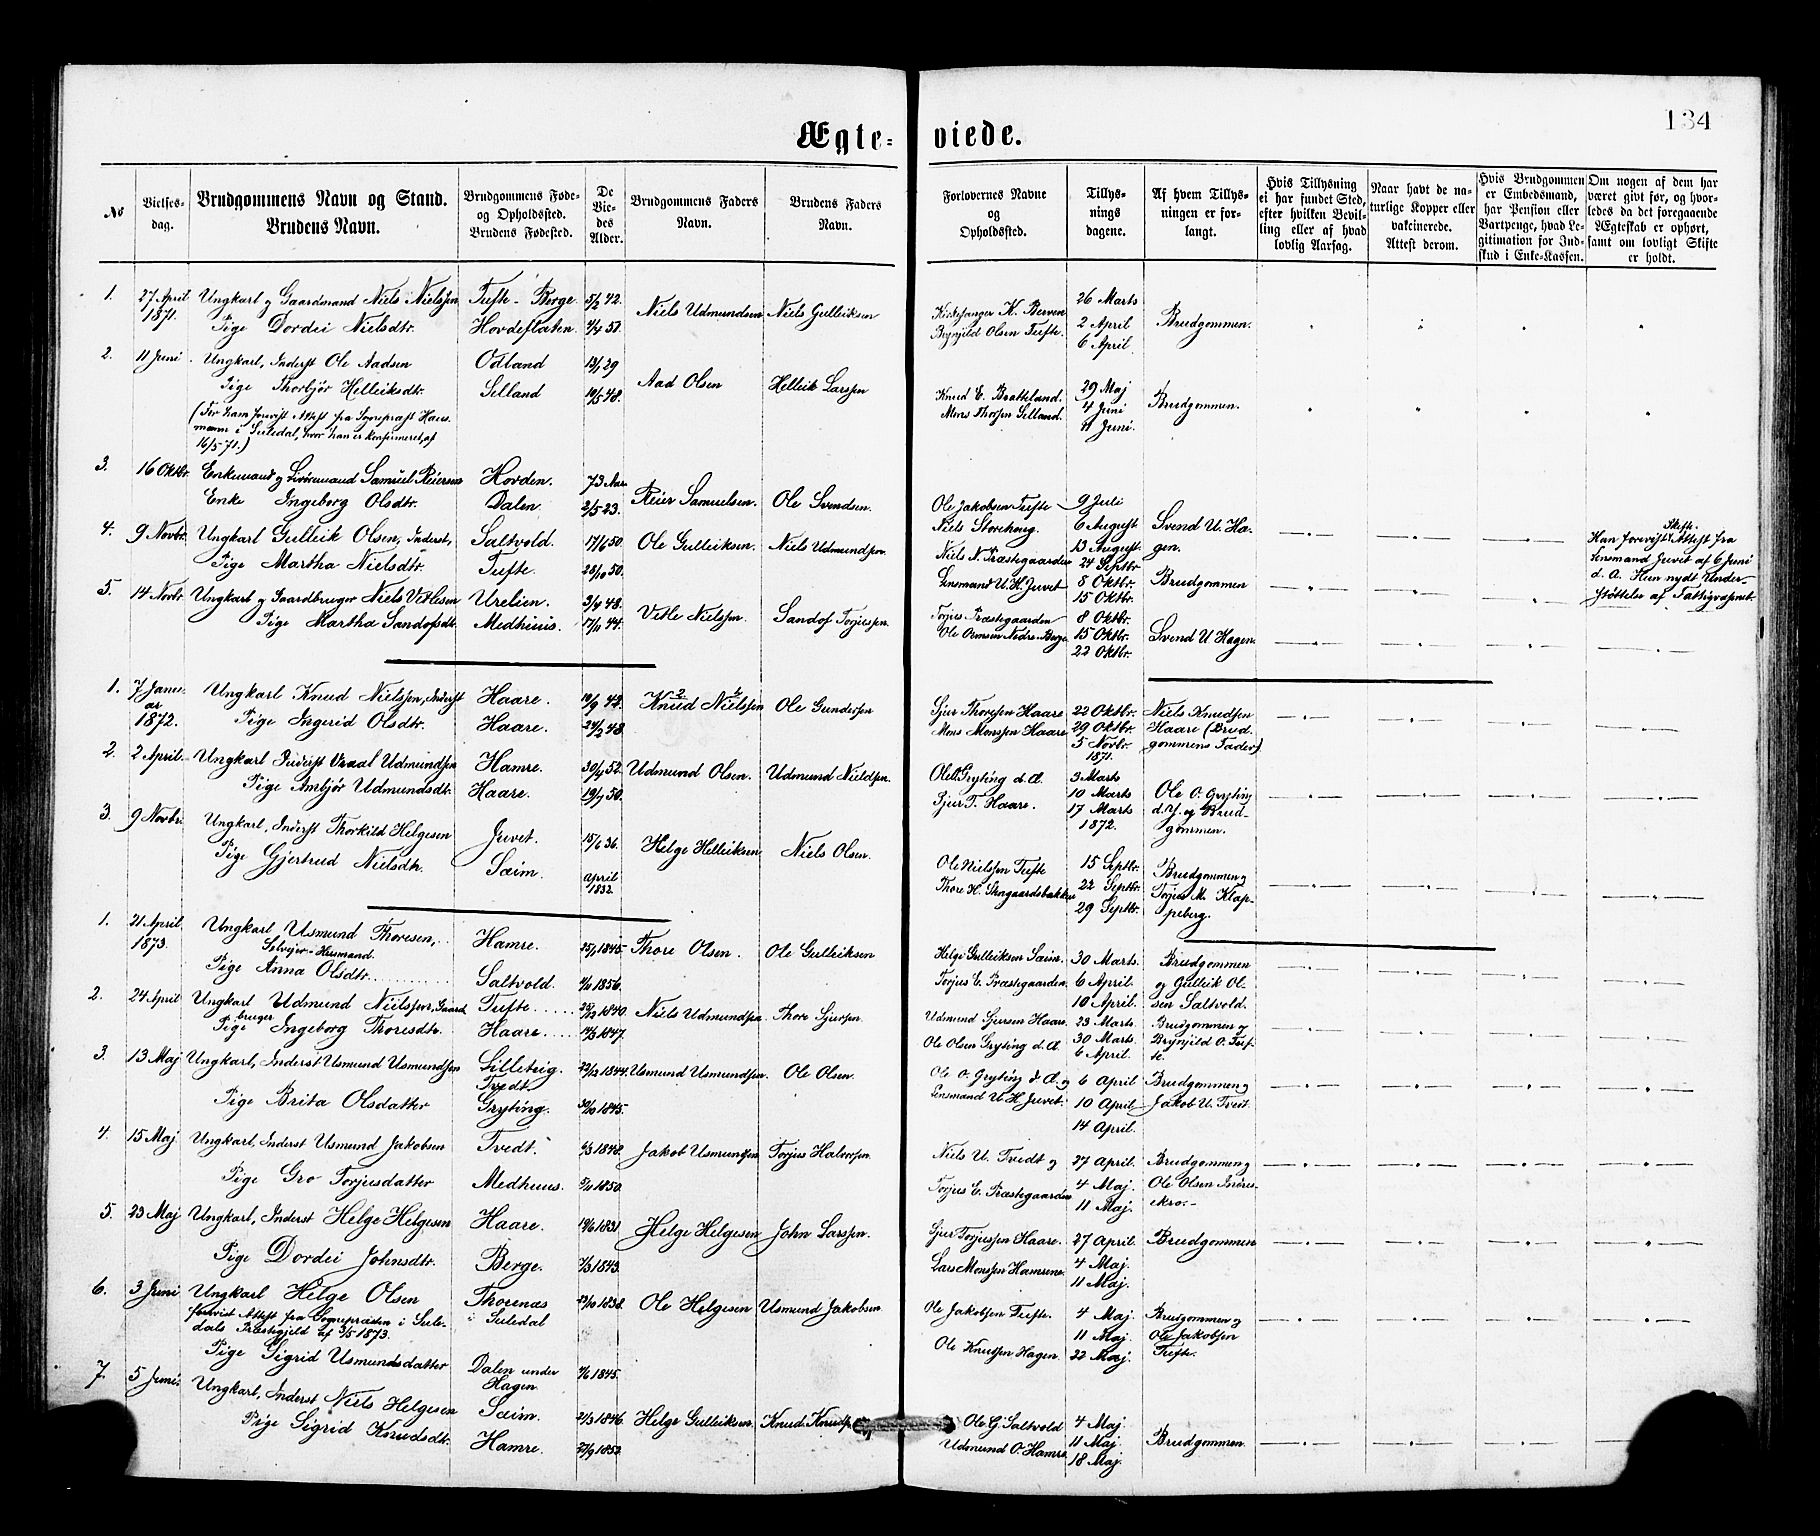 134
Ægte- viede.
No
Vielses-
dag.
Brudgommens Navn og Stand.
Brudens Navn.
Brudgommens Føde-
og Opholdssted.
Brudens Fødested.
De
Vie-
des
Alder.
Brudgommens Faders
Navn.
Brudens Faders
Navn.
Forlovernes Navne
og
Opholdssted.
Tillys-
nings
dagene.
Af hvem Tillys-
ningen er for-
langt.
Hvis Tillysning
ei har fundet Sted,
efter hvilken Bevil-
ling eller af hvad
lovlig Aarsag.
Naar havt de na-
turlige Kopper eller
vakcinerede.
Attest derom.
Hvis Brudgommen
er Embedsmand,
har Pension eller
Vartpenge, hvad Le-
gitimation for Ind-
skud i Enke-Kassen.
Om nogen af dem har
været givt før, og hvor-
ledes da det foregaaende
Ægteskab er ophørt,
samt om lovligt Skifte
er holdt.
1. 27 April Ungkarl og Gaardmand Niels Nielssen Tufte - Berge. 5/2 42. Niels Udmundsen Niels Gulleiksen
1871. Pige Dordei Nielsdtr. Hovdeflaten. 4/4 51.
Kirkesanger K. Berven 26 Marts
Brynjild Olsen Tufte. 2 April Brudgommen.
6 April.
2. 11 Juni Ungkarl, Inderst Ole Aadsen Odland 13/1 29 Aad Olsen Helleik Larssen
Pige Thorbjør Helleiksdtr. Lilland 10/5 48.
(For ham forevist Attest fra Sognepræst Haus-
mann i Suledal, hvor han er konfirmeret, af
16/5-71.)
Knud E. Bratteland. 29 Maj
Mons Thorsen Lilland. 4 Juni Brudgommen.
11 Juni.
3. 16 Oktbr. Enkemand og Livøremand Samuel Reiersen Hovden. 73 Aar. Reier Samuelsen. Ole Svendsen.
Enke Ingeborg Olsdtr. Dalen. 2/5 23.
Ole Jakobsen Tufte 9 Juli
Niels Storehaug. 6 August Svend U. Ha-
13 August. gen.
4. 9 Novbr. Ungkarl Gulleik Olsen, Inderst, Saltvold. 17/6 50. Ole Gulleiksen. Niels Udmundsen.
Pige Martha Nielsdtr. Tufte. 28/10 50.
Niels N. Præstegaarden 24 Septbr.
Lensmand U. H. Juvet 8 Oktbr. Brudgommen
15 Oktbr.
Skifte.
Han forevist Attest fra
Lensmand Juvet af 6 Juni
d. A. Hun nydt Under-
støttelse af Fattigvæsnet.
5. 14 Novbr. Ungkarl og Gaardbruger Niels Vetlesen Urelien. 3/4 48. Vetle Nielssen. Sandof Torjussen.
Pige Martha Sandofsdt. Medhuus. 17/11 44.
Torjus Præstegaarden 8 Oktbr.
Ole Ormsen Nedre-Berge. 15 Oktbr. Svend U Hagen.
22 Oktbr.
1. 7 Janu- Ungkarl Knud Nielssen, Inderst Haare. 10/9 42. Knud Nielssen Ole Gundersen
ar
1872. Pige Ingerid Olsdtr. Haare. 24/2 48.
Sjur Thoresen Haare 22 Oktbr. Niels Knudsen
Mons Monssen Haare 29 Oktbr. Haare (Brud-
5 Novbr. gommens Fader)
1871.
2. 2 April. Ungkarl Inderst Vraal Udmundsen Hamre. 30/4 52. Udmund Olsen. Udmund Nielssen.
Pige Ambjør Udmundsdtr. Haare. 19/7 50.
Ole O. Gryting d. Æ. 3 Marts
Sjur T. Haare. 10 Marts Ole O. Gryting
17 Marts d. Y. og Brud-
1872. gommen.
3. 9 Novbr. Ungkarl, Inderst Thorkild Helgesen Juvet. 15/6 36. Helge Helleiksen Niels Olsen.
Pige Gjertrud Nielsdtr. Saim. April
1832.
Ole Nielssen Tufte 15 Septbr. Brudgommen og
Thore H. Stengaardsbakken 22 Septbr. Torjus M. Klap-
29 Septbr. peberg.
1. 21 April Ungkarl Usmund Thoresen, Hamre. 25/1 1845. Thore Olsen. Ole Gulleiksen
1873. Selvejer-Husmand.
Pige Anna Olsdtr. Saltvold. 4/11 1856.
Helge Gulleiksen Saim. 30 Marts. Brudgommen
Torjus E. Præstegaarden. 6 April. og Gulleik Ol-
10 April. sen Saltvold.
2. 24 April Ungkarl Udmund Nielssen, Gaard- Tufte. 25/12 1840. Niels Udmundsen Thore Sjursen.
bruger
Pige Ingeborg Thoresdtr. Haare. 14/3 1847.
Udmund Sjursen Haare. 23 Marts. Brudgommen og
Ole Olsen Gryting d. Æ. 30 Marts. Brynjild O. Tuf-
6 April. te.
3. 13 Maj Ungkarl, Inderst Usmund Usmundsen Lilleteig. 22/12 1844. Usmund Usmundsen. Ole Olsen.
Tvedt.
Pige Brita Olsdatter Gryting. 30/10 1845.
Ole O. Gryting d. Æ. og 6 April Brudgommen og
Lensmand U. H. Juvet. 10 April Jakob U. Tvedt.
14 April.
4. 15 Maj Ungkarl, Inderst Usmund Jakobsen Tvedt. 6/3 1848. Jakob Usmundsen Torjus Halvorsen.
Pige Gro Torjusdatter Medhuus. 5/11 1850.
Niels U. Tvedt og 27 April. Brudgommen og
Torjus E. Præstegaarden 4 Maj. Ole Olsen
11 Maj.
5. 23 Maj Ungkarl, Inderst Helge Helgesen Haare. 19/6 1831. Helge Helgesen John Larssen.
Pige Dordei Johnsdtr. Berge. 7/3 1843.
Sjur Torjussen Haare. 27 April. Brudgommen
Lars Monssen Hamrene. 4 Maj.
11 Maj.
6. 3 Juni Ungkarl Helge Olsen Thornæs 23/10 1838. Ole Helgesen Usmund Jakobsen.
forevist Attest fra Sognepræsten i Sule- i Suledal
dals Præstegjeld af 2/5 1873.
Pige Sigrid Usmundsdatter Dalen under 4/6 1845.
Hagen
Ole Jakobsen Tufte. 4 Maj Brudgommen og
Ole Knutsen Hagen. 11 Maj. Ole Jakobsen
22 Maj. Tufte.
7. 5 Juni. Ungkarl, Inderst Niels Helgesen Saim. 21/3 1846. Helge Gulleiksen. Knud Knuds
Pige Sigrid Knudsdtr. Hamre. 27/9 1852.
Ole G. Saltvold 4 Maj.
Udmund O. Hamre 11 Maj. Brudgommen.
18 Maj.